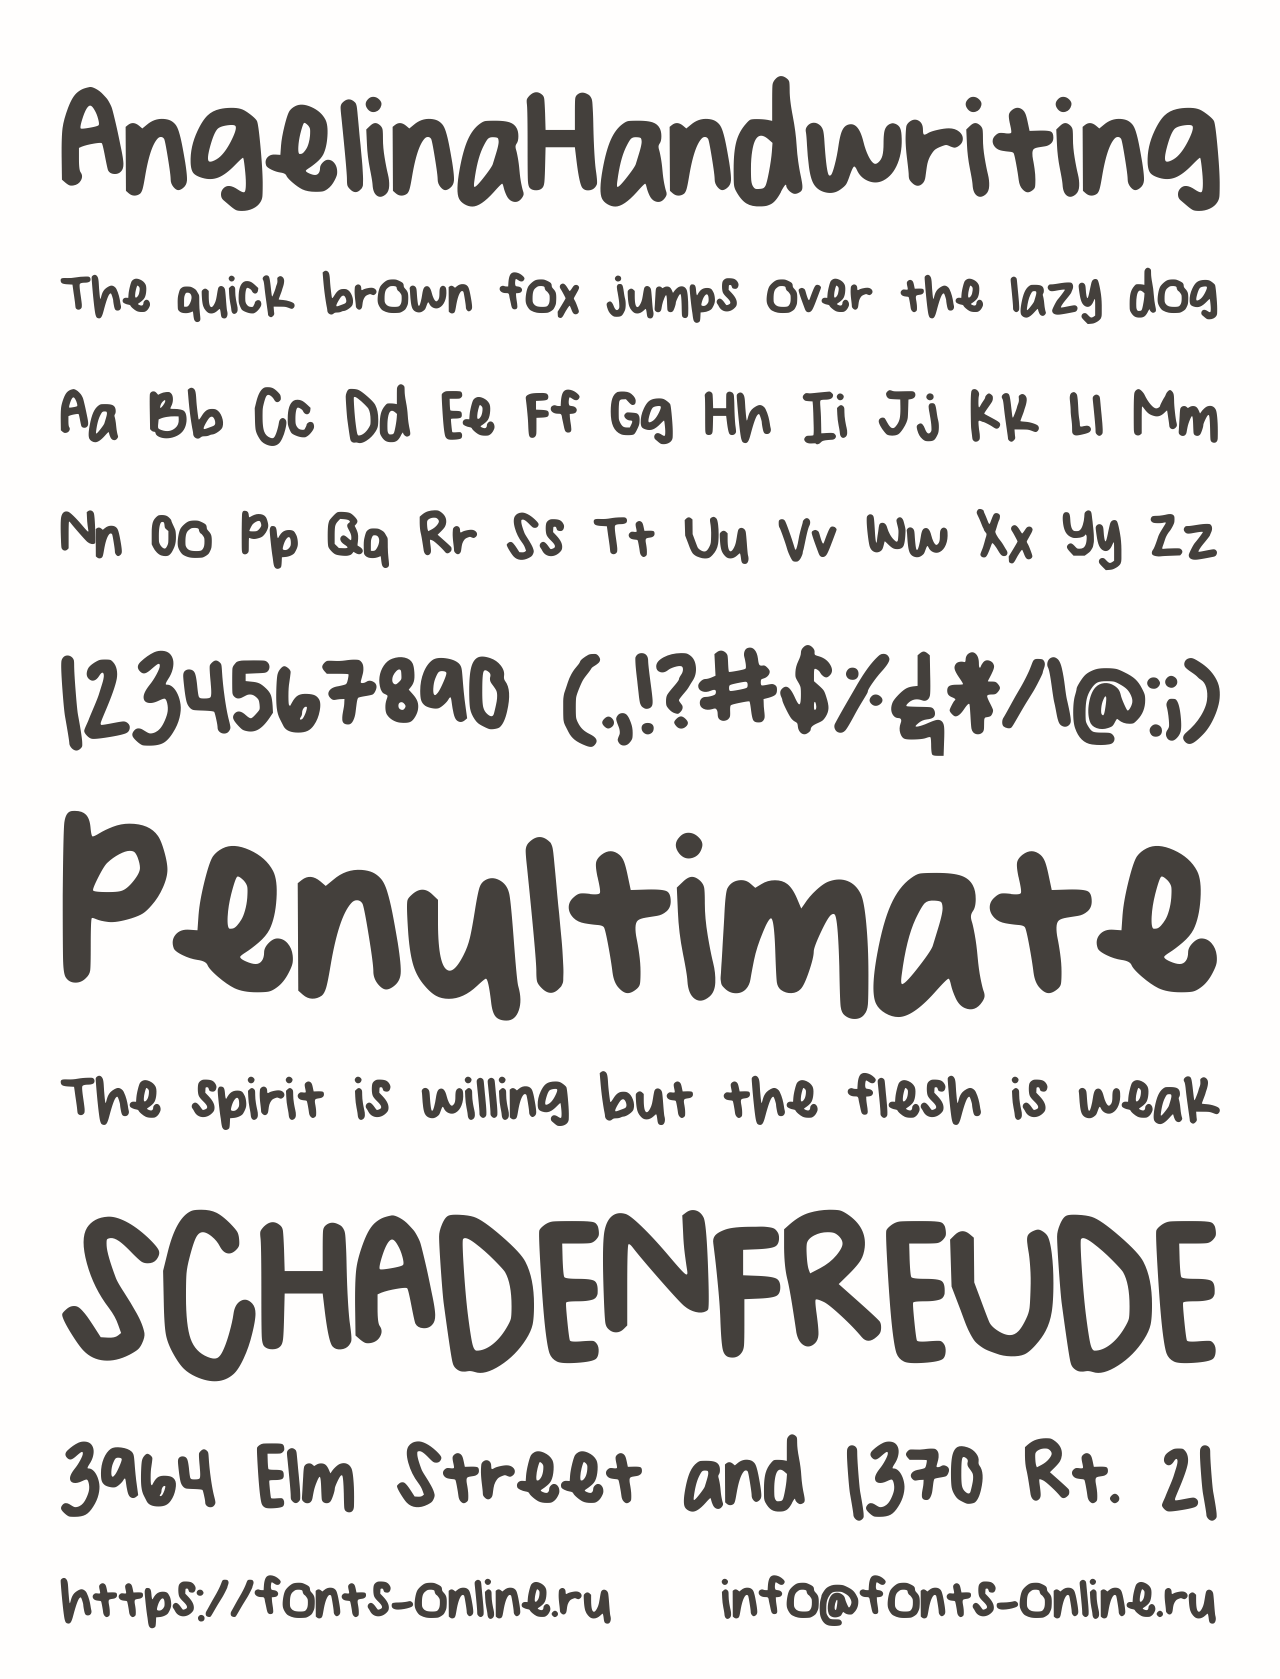 AngelinaHandwriting
The quick brown fox jumps over the lazy dog
Aa Bb Cc Dd Ee Ff Gg Hh Ii Jj Kk Ll Mm
Nn Oo Pp Qq Rr Ss Tt Uu Vv Ww Xx Yy Zz
1234567890 (.,!?#$%&*/\@:;)
Penultimate
The spirit is willing but the flesh is weak
SCHADENFREUDE
3964 Elm Street and 1370 Rt. 21
https://fonts-online.ru info@fonts-online.ru